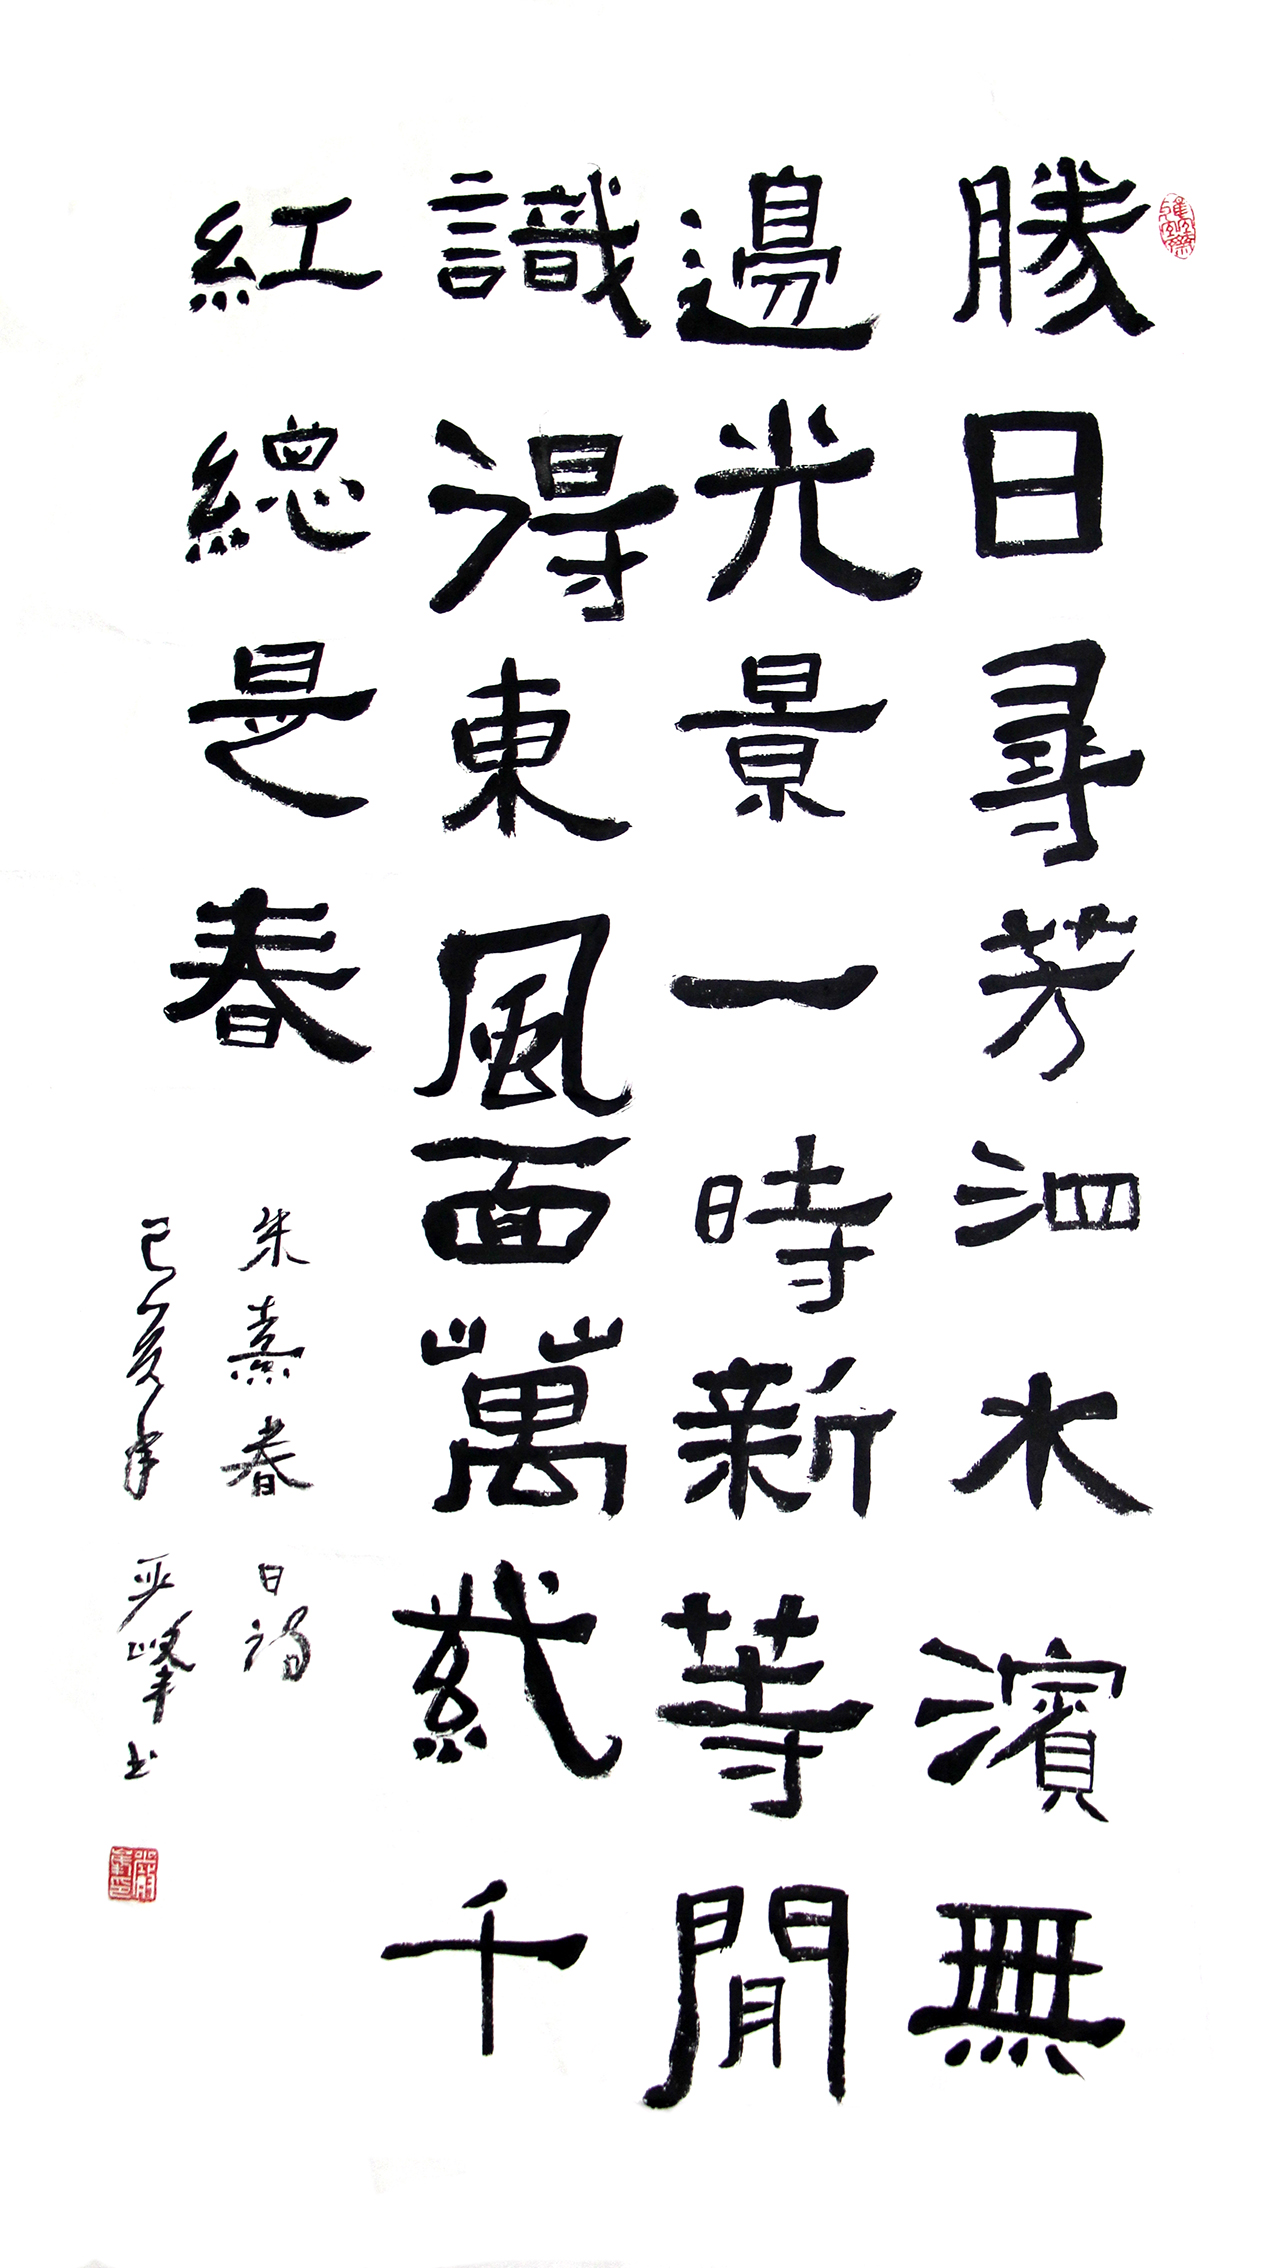 勝日尋芳泗水濱無
邊光景一時新等閒
識得東風面萬紫千
紅總是春
朱熹春日
己亥年严峰书